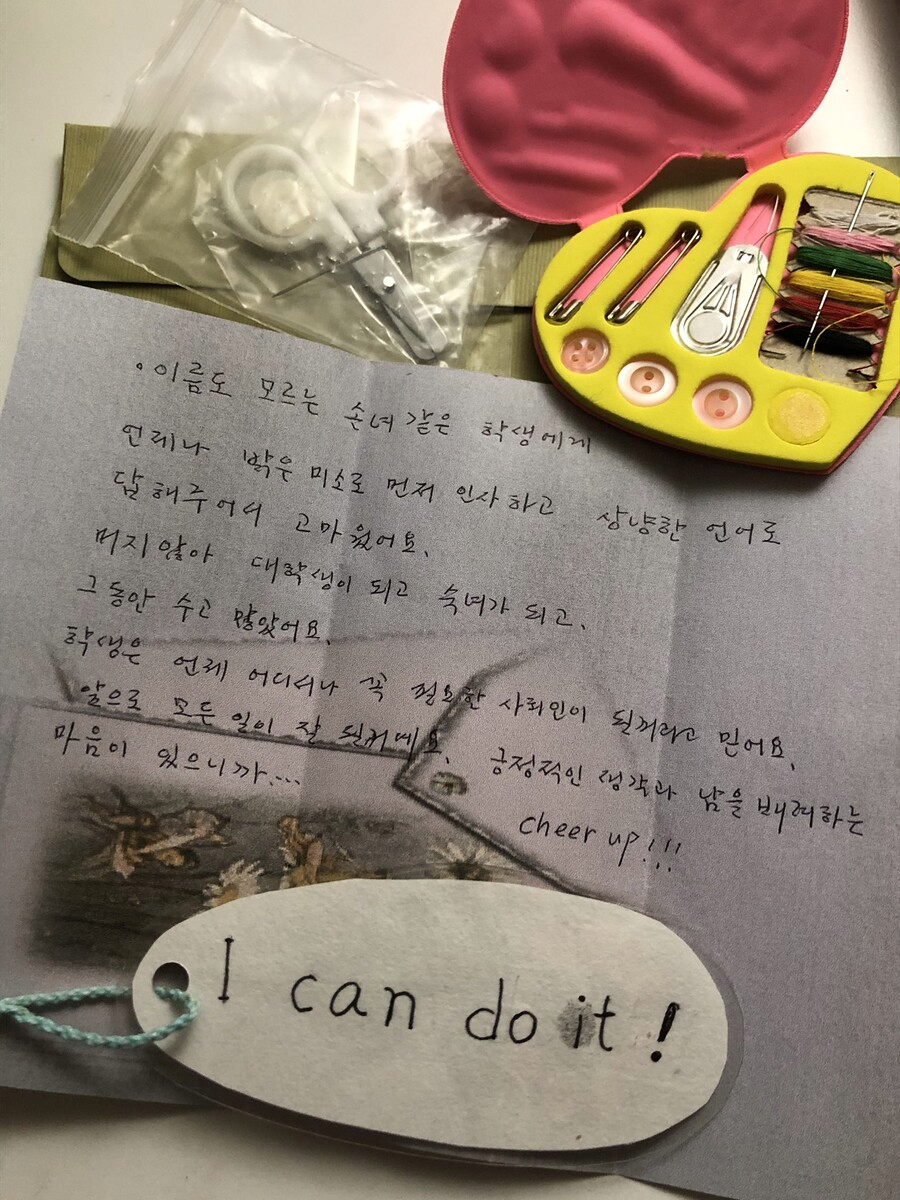 ·이름도 모르는 손녀같은 학생에게
언제나 밝은 미소로 먼저 인사하고 상냥한 언어로
답해주어서 고마웠어요.
머지않아 대학생이 되고 숙녀가 되고.
그동안 수고 많았어요.
학생은 언제 어디서나 꼭 필요한 사회인이 될꺼라고 믿어요.
앞으로 모든 일이 잘 될꺼예요. 긍정적인 생각과 남을 배려하는
마음이 있으니까...
cheer up!!!
I can do it!